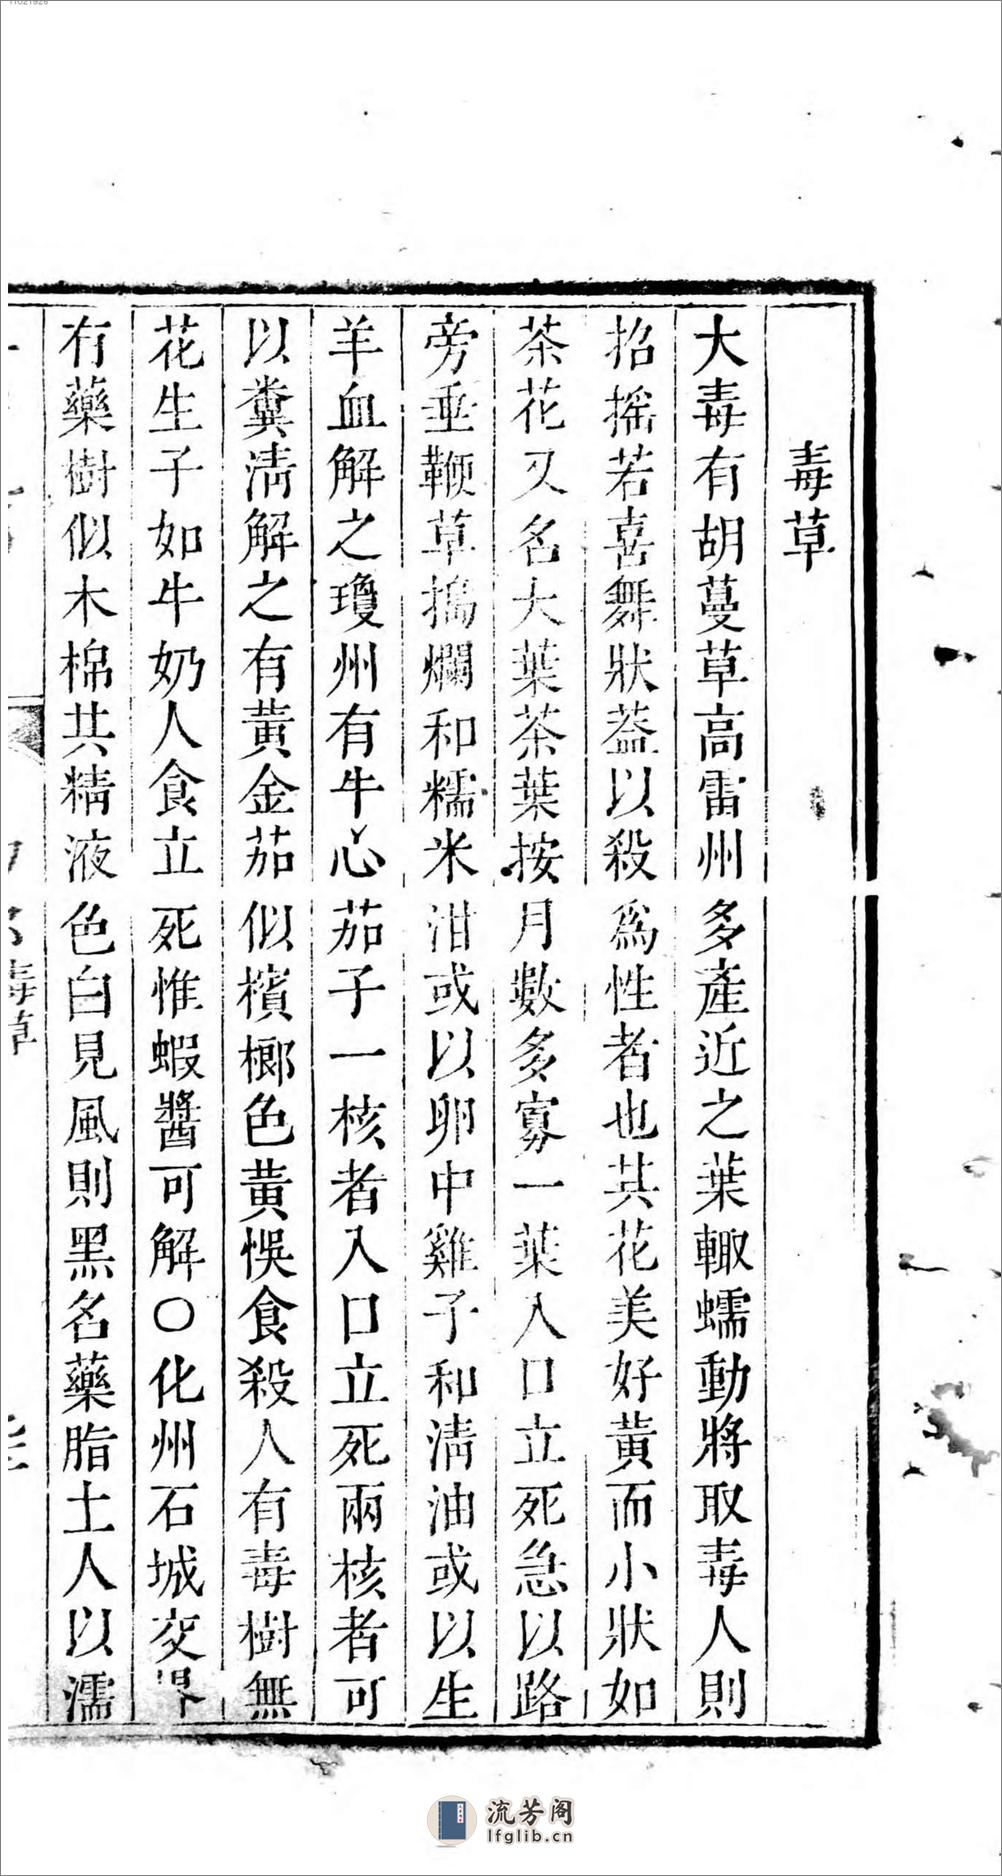 毒草
大毒有胡蔓草高雷州多產近之葉輙蠕動將取毒人則
招搖若喜舞狀葢以殺爲性者也其花美好黃而小狀如
茶花又名大葉茶葉按月數多寡一葉入口立死急以路
旁垂鞭草搗爛和糯米泔或以卵中雞子和淸油或以生
羊血解之瓊州有牛心茄子一核者入口立死兩核者可
以糞淸解之有黃金茄似檳榔色黃悞食殺人有毒樹無
花生子如牛奶人食立死惟蝦醬可解○化州石城交界
有藥樹似木棉其精液色白見風則黑名藥脂土人以濡
毒草
流芳阁
lfglib.cn